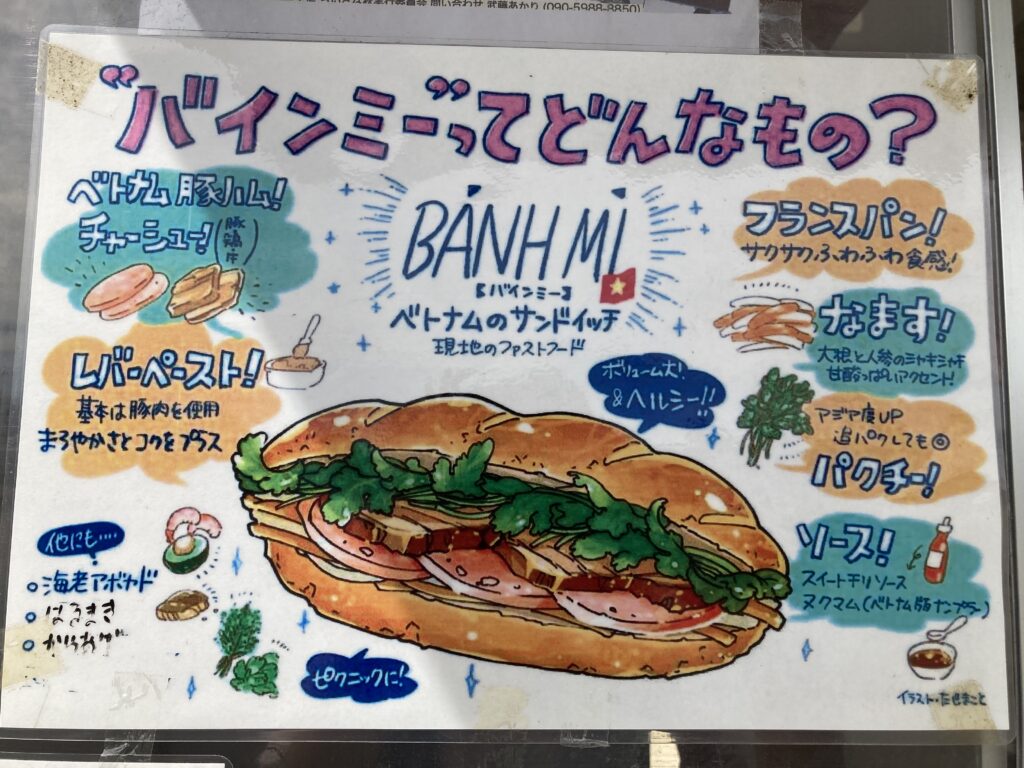 問い合わせ 武藤あかり (090-5988-8850)
"バインミー"ってどんなもの?
ベトナム豚ハム!
チャーシュー!(豚鶏牛)
レバーペースト!
基本は豚肉を使用
まろやかさとコクをプラス
BÁNH MÌ
【バインミー】
ベトナムのサンドイッチ
現地のファストフード
ボリューム大!
&ヘルシー!!
フランスパン!
サクサクふわふわ食感!
なます!
大根と人参のシャキシャキ
甘酸っぱいアクセント!
アジア度UP
追パクしても◎
パクチー!
ソース!
スイートチリソース
ヌクマム(ベトナム版ナンプラー)
他にも‥‥
○海老アボカド
○はるまき
○からあげ
ピクニックに!
イラスト・たせまこと